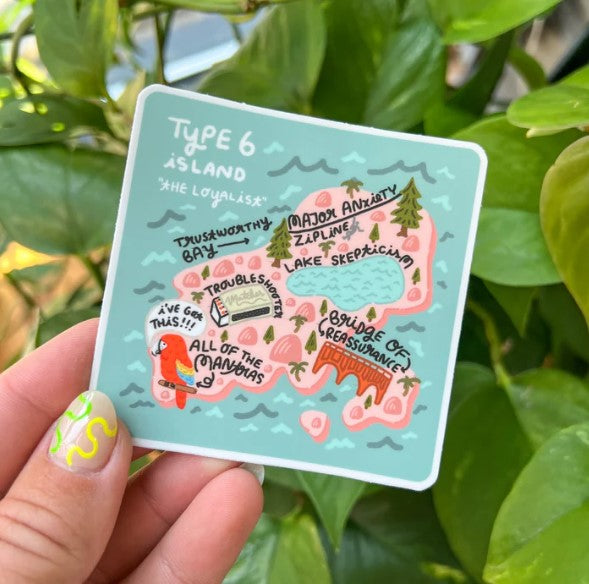 TYPE 6
iSLAND
"THE LOYALIST"
TRUSTWORTHY
BAY
MAJOR ANXIETY
ZIPLINE
LAKE SKEPTICISM
TROUBLESHOOTER
Matches
BRIDGE OF
REASSURANCE
i'VE GOT
THIS!!!
ALL OF THE
MANTRAS